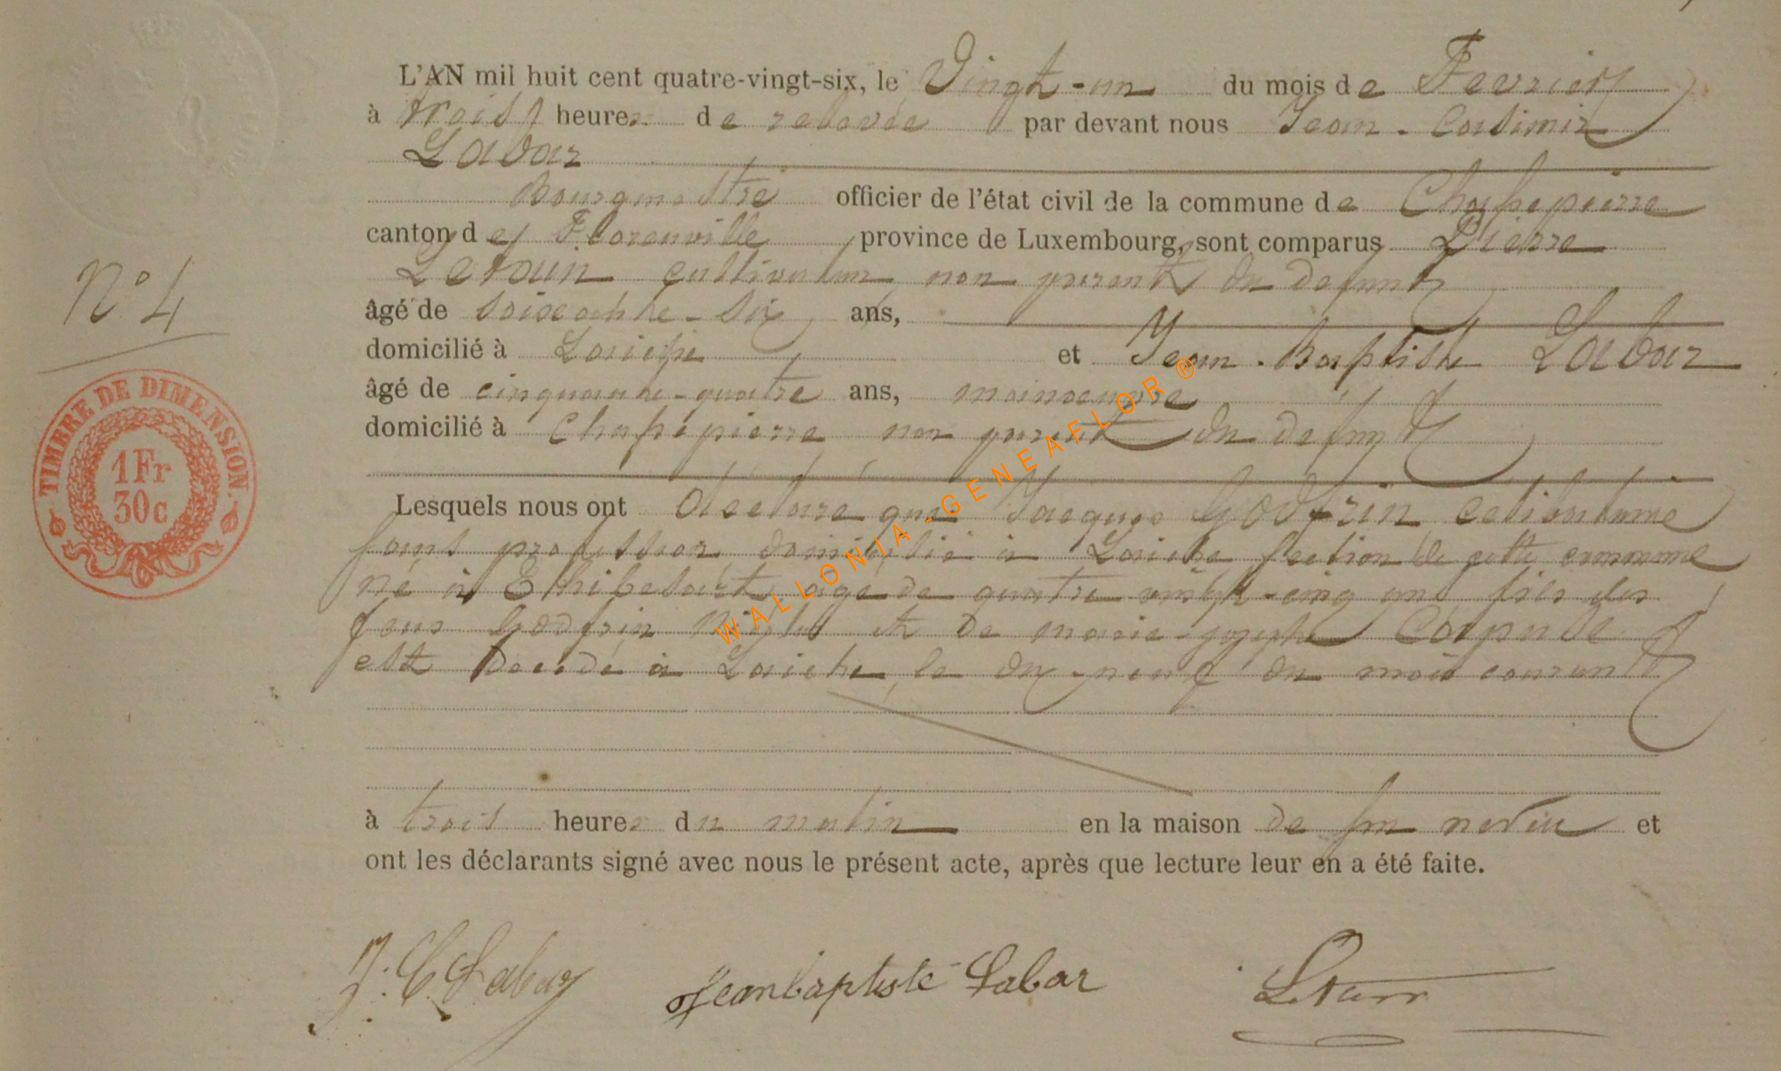 L'AN mil huit cent quatre-vingt-six, le Vingt-un du mois de Fevrier
à trois heures de relevée par devant nous Jean-Casimir
Labar
Bourgmestre officier de l'état civil de la commune de Chassepierre
canton de Florenville province de Luxembourg, sont comparus Pierre
cultivateur non parent du defunt
âgé de soixante-six ans,
domicilié à Laiche et Jean-Baptiste Labar
âgé de cinquante-quatre ans, manoeuvre
domicilié à Chassepierre non parent du defunt
Lesquels nous ont déclaré que Jacques Godfrin celibataire
sans profession domicilié à Laiche section de cette commune
né à age de quatre vingt-cinq ans fils des
feus Godfrin et de marie-josephe
est décédé à Laiche le dix-neuf du mois courant
à trois heures du matin en la maison de son neveu et
ont les déclarants signé avec nous le présent acte, après que lecture leur en a été faite.
N° 4
TIMBRE DE DIMENSION.
1 Fr
30c
WALLONIA-GENEAFLOR ®
J. C Labar Jeanbaptiste Labar